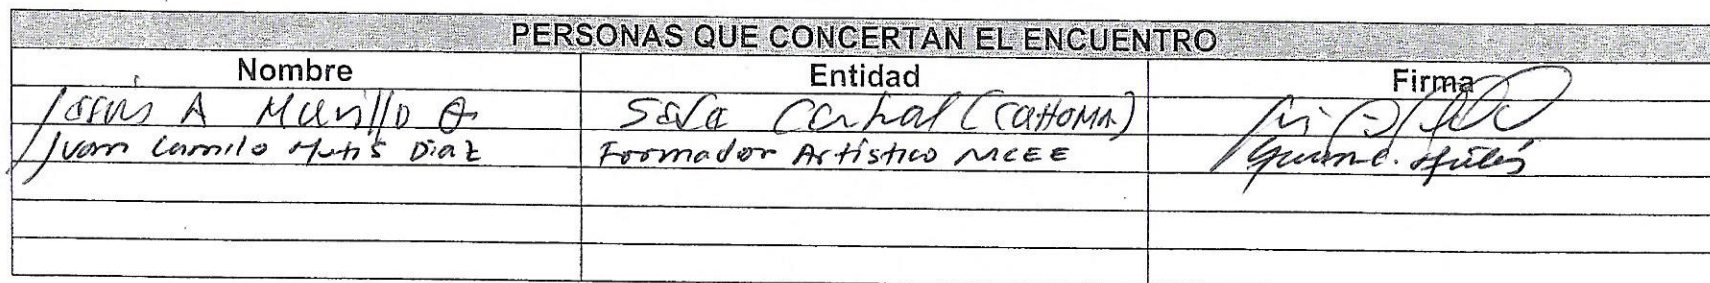 PERSONAS QUE CONCERTAN EL ENCUENTRO
Nombre Entidad Firma
Jesús A Murillo Sala (CAHOMA)
Juan Camilo Mutis Diaz Formador Artístico MCEE Juan C. Mutis